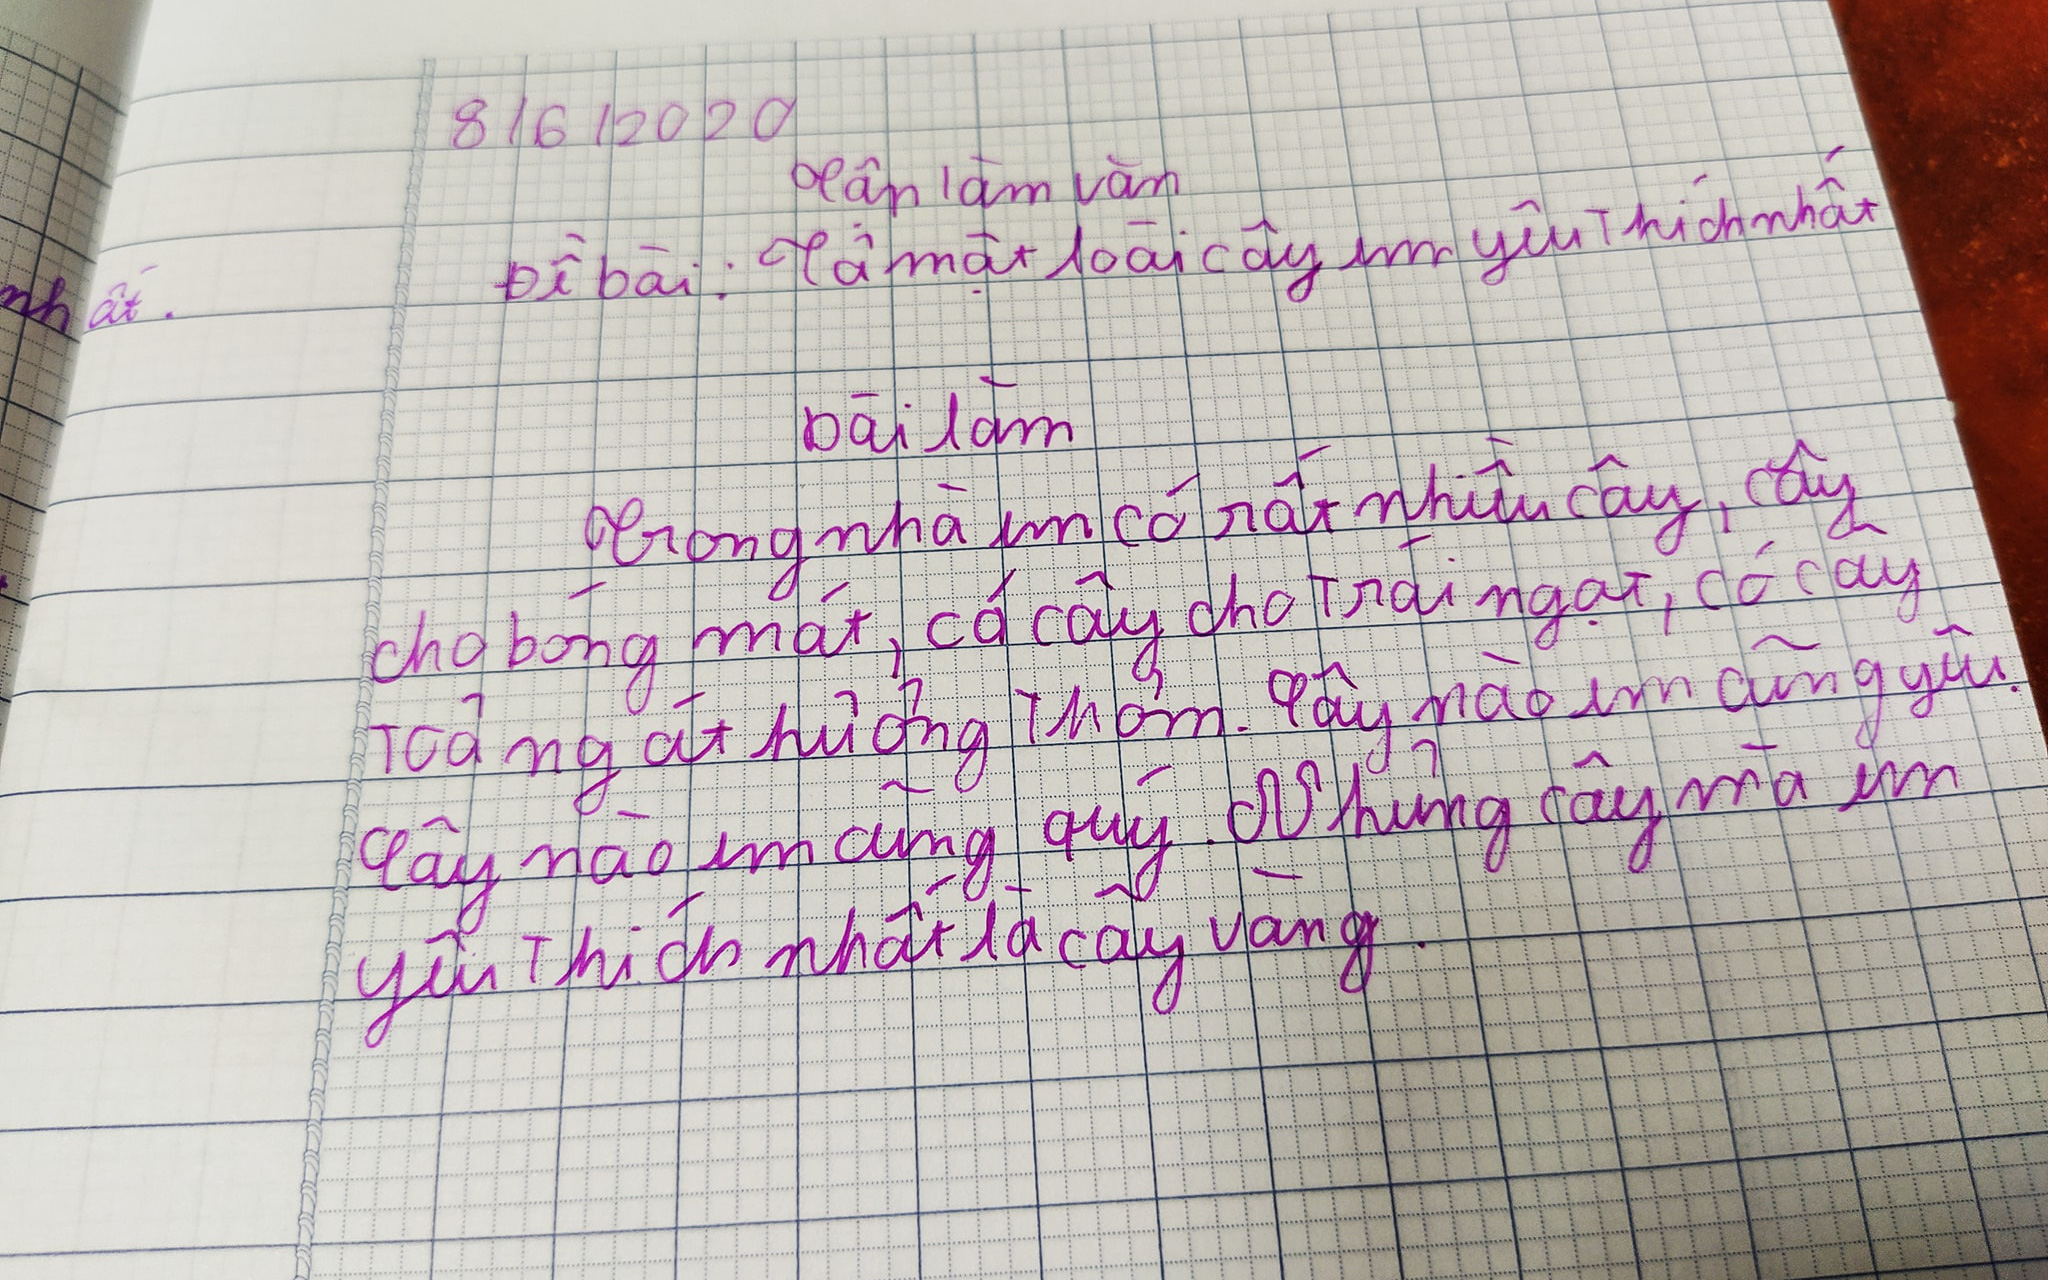 8/6/2020
Tập làm văn
Đề bài: Tả một loài cây em yêu thích nhất
nhất.
Bài làm
Trong nhà em có rất nhiều cây, cây
cho bóng mát, có cây cho trái ngọt, có cây
toả ngát hương thơm. Cây nào em cũng yêu.
Cây nào em cũng quý. Nhưng cây mà em
yêu thích nhất là cây vàng.